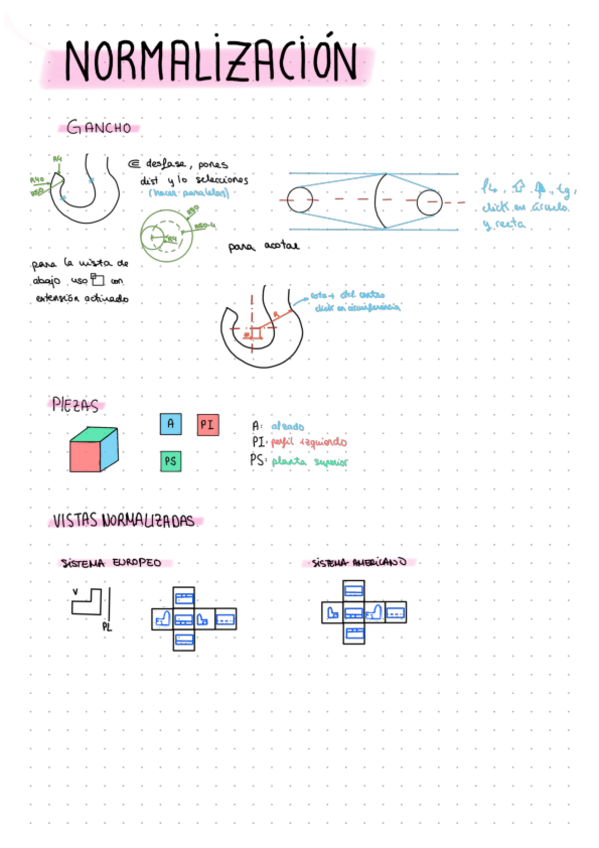 NORMALIZACIÓN
GANCHO
R4
R40
∈ desfase, pones
dist y lo selecciones
(hacer paralelas)
para acotar
para la vista de
abajo uso con
extensión activado
click en círculo
y recta
cota → del centro
click en circunferencia
R
PIEZAS
A PI
PS
A: alzado
PI: perfil izquierdo
PS: planta superior
VISTAS NORMALIZADAS
SISTEMA EUROPEO
SISTEMA AMERICANO
V
PL